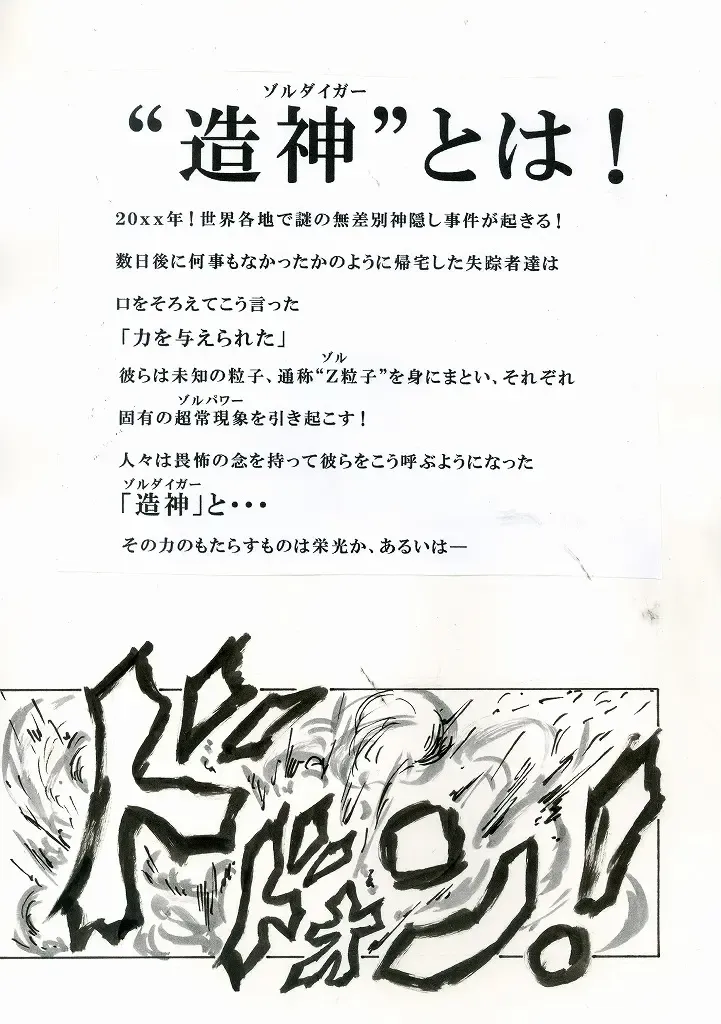 ゾルダイガー
“造神”とは！
20xx年！世界各地で謎の無差別神隠し事件が起きる！
数日後に何事もなかったかのように帰宅した失踪者達は
口をそろえてこう言った
「力を与えられた」
ゾル
彼らは未知の粒子、通称“Z粒子”を身にまとい、それぞれ
ゾルパワー
固有の超常現象を引き起こす！
人々は畏怖の念を持って彼らをこう呼ぶようになった
ゾルダイガー
「造神」と・・・
その力のもたらすものは栄光か、あるいは―
ドドォン！